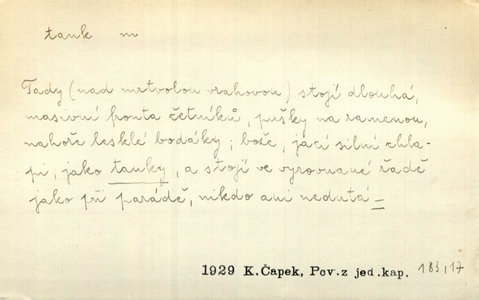 tank m
Tady (nad mrtvolou vrahovou) stojí dlouhá,
masivní fronta četníků, pušky na ramenou,
nahoře lesklé bodáky; bože, jací silní chla-
pi, jako tanky, a stojí ve vyrovnané řadě
jako při parádě, nikdo ani nedutá –
1929 K.Čapek, Pov.z jed.kap. 183,17